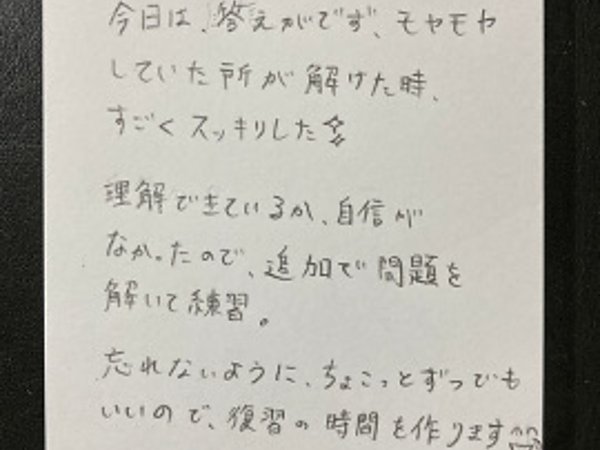 今日は、答えがでず、モヤモヤ
していた所が解けた時、
すごくスッキリした✨
理解できているか、自信が
なかったので、追加で問題を
解いて練習。
忘れないように、ちょこっとずつでも
いいので、復習の時間を作ります